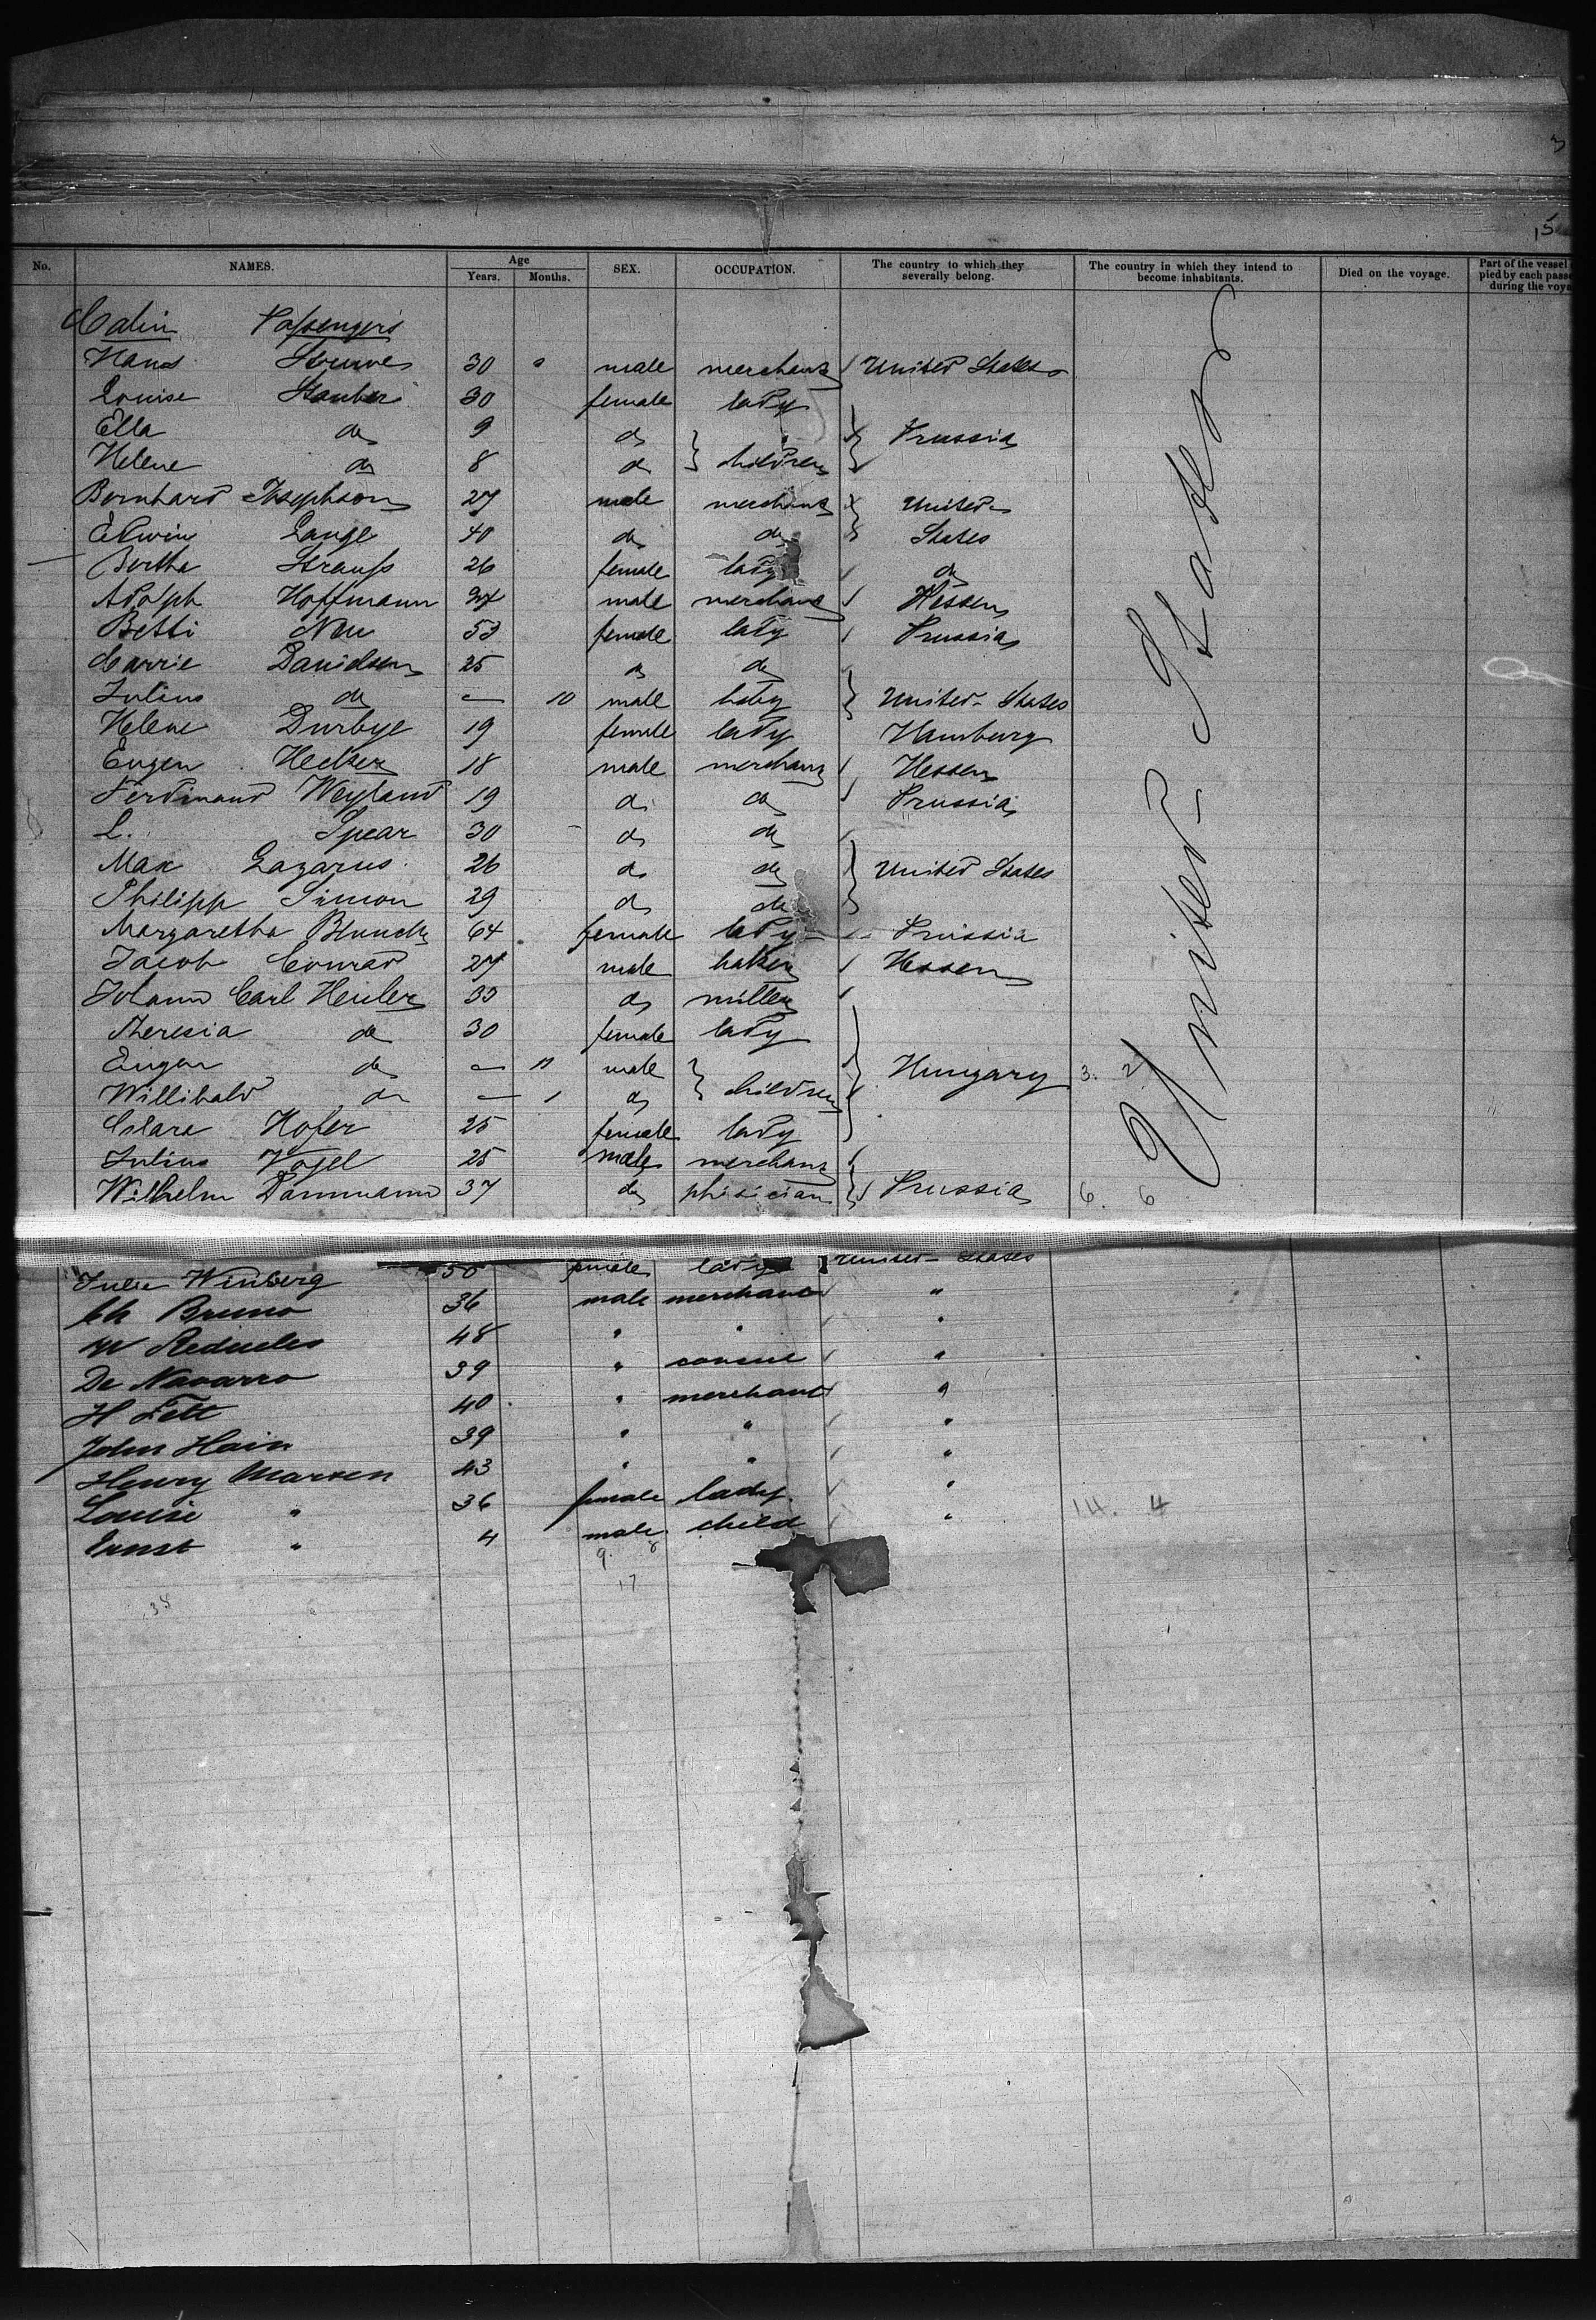 3
15
No. NAMES. Age Years. Months. SEX. OCCUPATION. The country to which they severally belong. The country in which they intend to become inhabitants. Died on the voyage. Part of the vessel pied by each during the
Cabin Passengers
Hans 30 male merchant United States
Louise Stauber 30 female lady
Ella do 9 do
Helene do 8 do children Prussia
Bernhard Josephson 27 male merchant United
Edwin Lange 40 do do States
Bertha Strauss 26 female lady do
Adolph Hoffmann male merchant Hessen
Betti Neu 53 female lady Prussia
Carrie Davidsen 25 do do
Julius do — 10 male baby United States
Helene Durbye 19 female lady Hamburg
Eugen 18 male merchant Hessen
Ferdinand Weyland 19 do do Prussia
L. Spear 30 do do
Max Lazarus 26 do do United States
Philipp Simon 29 do do
Margaretha 64 female lady Prussia
Jacob Conrad 27 male baker Hessen
Johann Carl 33 do miller
Theresia do 30 female lady
Eugen do — 11 male Hungary 3. 2
Willibald do — 1 do children
Clara Hofer 25 female lady
Julius Vogel 25 male merchant
Wilhelm Dammann 37 do phisician Prussia 6. 6
United States
Julie Winberg 50 female lady United States
Ch Bruno 36 male merchant "
W 48 " " "
De Navarro 39 " consul "
H Fett 40 " merchant "
John Hain 39 " " "
Henry Marxen 43 " " "
Louise " 36 female lady "
Ernst " 4 male child " 14. 4
9. 8
17